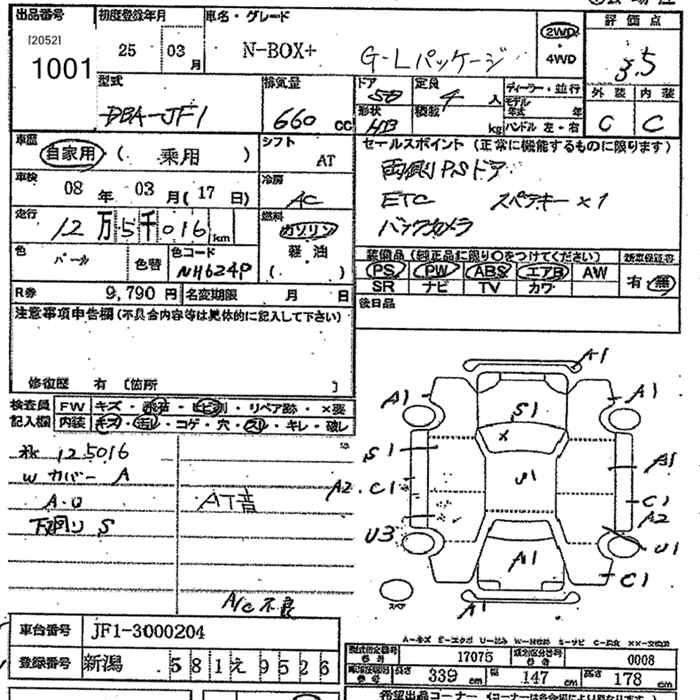 出品番号 初度登録年月 車名・グレード 評価点
[20521
1001
25 03月
N-BOX+ G-Lパッケージ
2WD
4WD
3.5
外装 内装
C C
型式
DBA-JF1
排気量
660 cc
ドア 5D
定員 4人
形状 HB
積載 kg
ディーラー・並行
モデル年式 年
ハンドル 左・右
車歴
自家用 ( 乗用 )
シフト
AT
車検
08年 03月(17日)
冷房
AC
走行
12万5千016km
燃料
ガソリン
軽・油
( )
色 パール 色替
色コード NH624P
R券 9,790円 名変期限 月 日
セールスポイント (正常に機能するものに限ります)
両側PSドア
ETC スペアキー×1
バックカメラ
装備品(純正品に限り〇をつけてください) 新車保証書
PS PW ABS エアB AW
SR ナビ TV カワ
有・無
後日品
注意事項申告欄(不具合内容等は具体的に記入して下さい)
修復歴 有 [箇所 ]
検査員 FW キズ・飛石・ヒビ割・リペア跡・×要
記入欄 内装 キズ・汚レ・コゲ・穴・スレ・キレ・破レ
125016
W カバー A
下廻り S
AT音
A/C不良
A1
A1 A1
S1
X
S1 A1
A2 C1 C1 A2
U1
U3 U1
A1
C1
A1
スペア
車台番号 JF1-3000204
登録番号 新潟 581 え 9526
A-キズ E-エクボ U-凹み W-補修跡 S-サビ C-腐食 XX-交換済
型式指定番号 17075 類別区分番号 0008
長さ 339cm 幅 147cm 高さ 178cm
希望出品コーナー